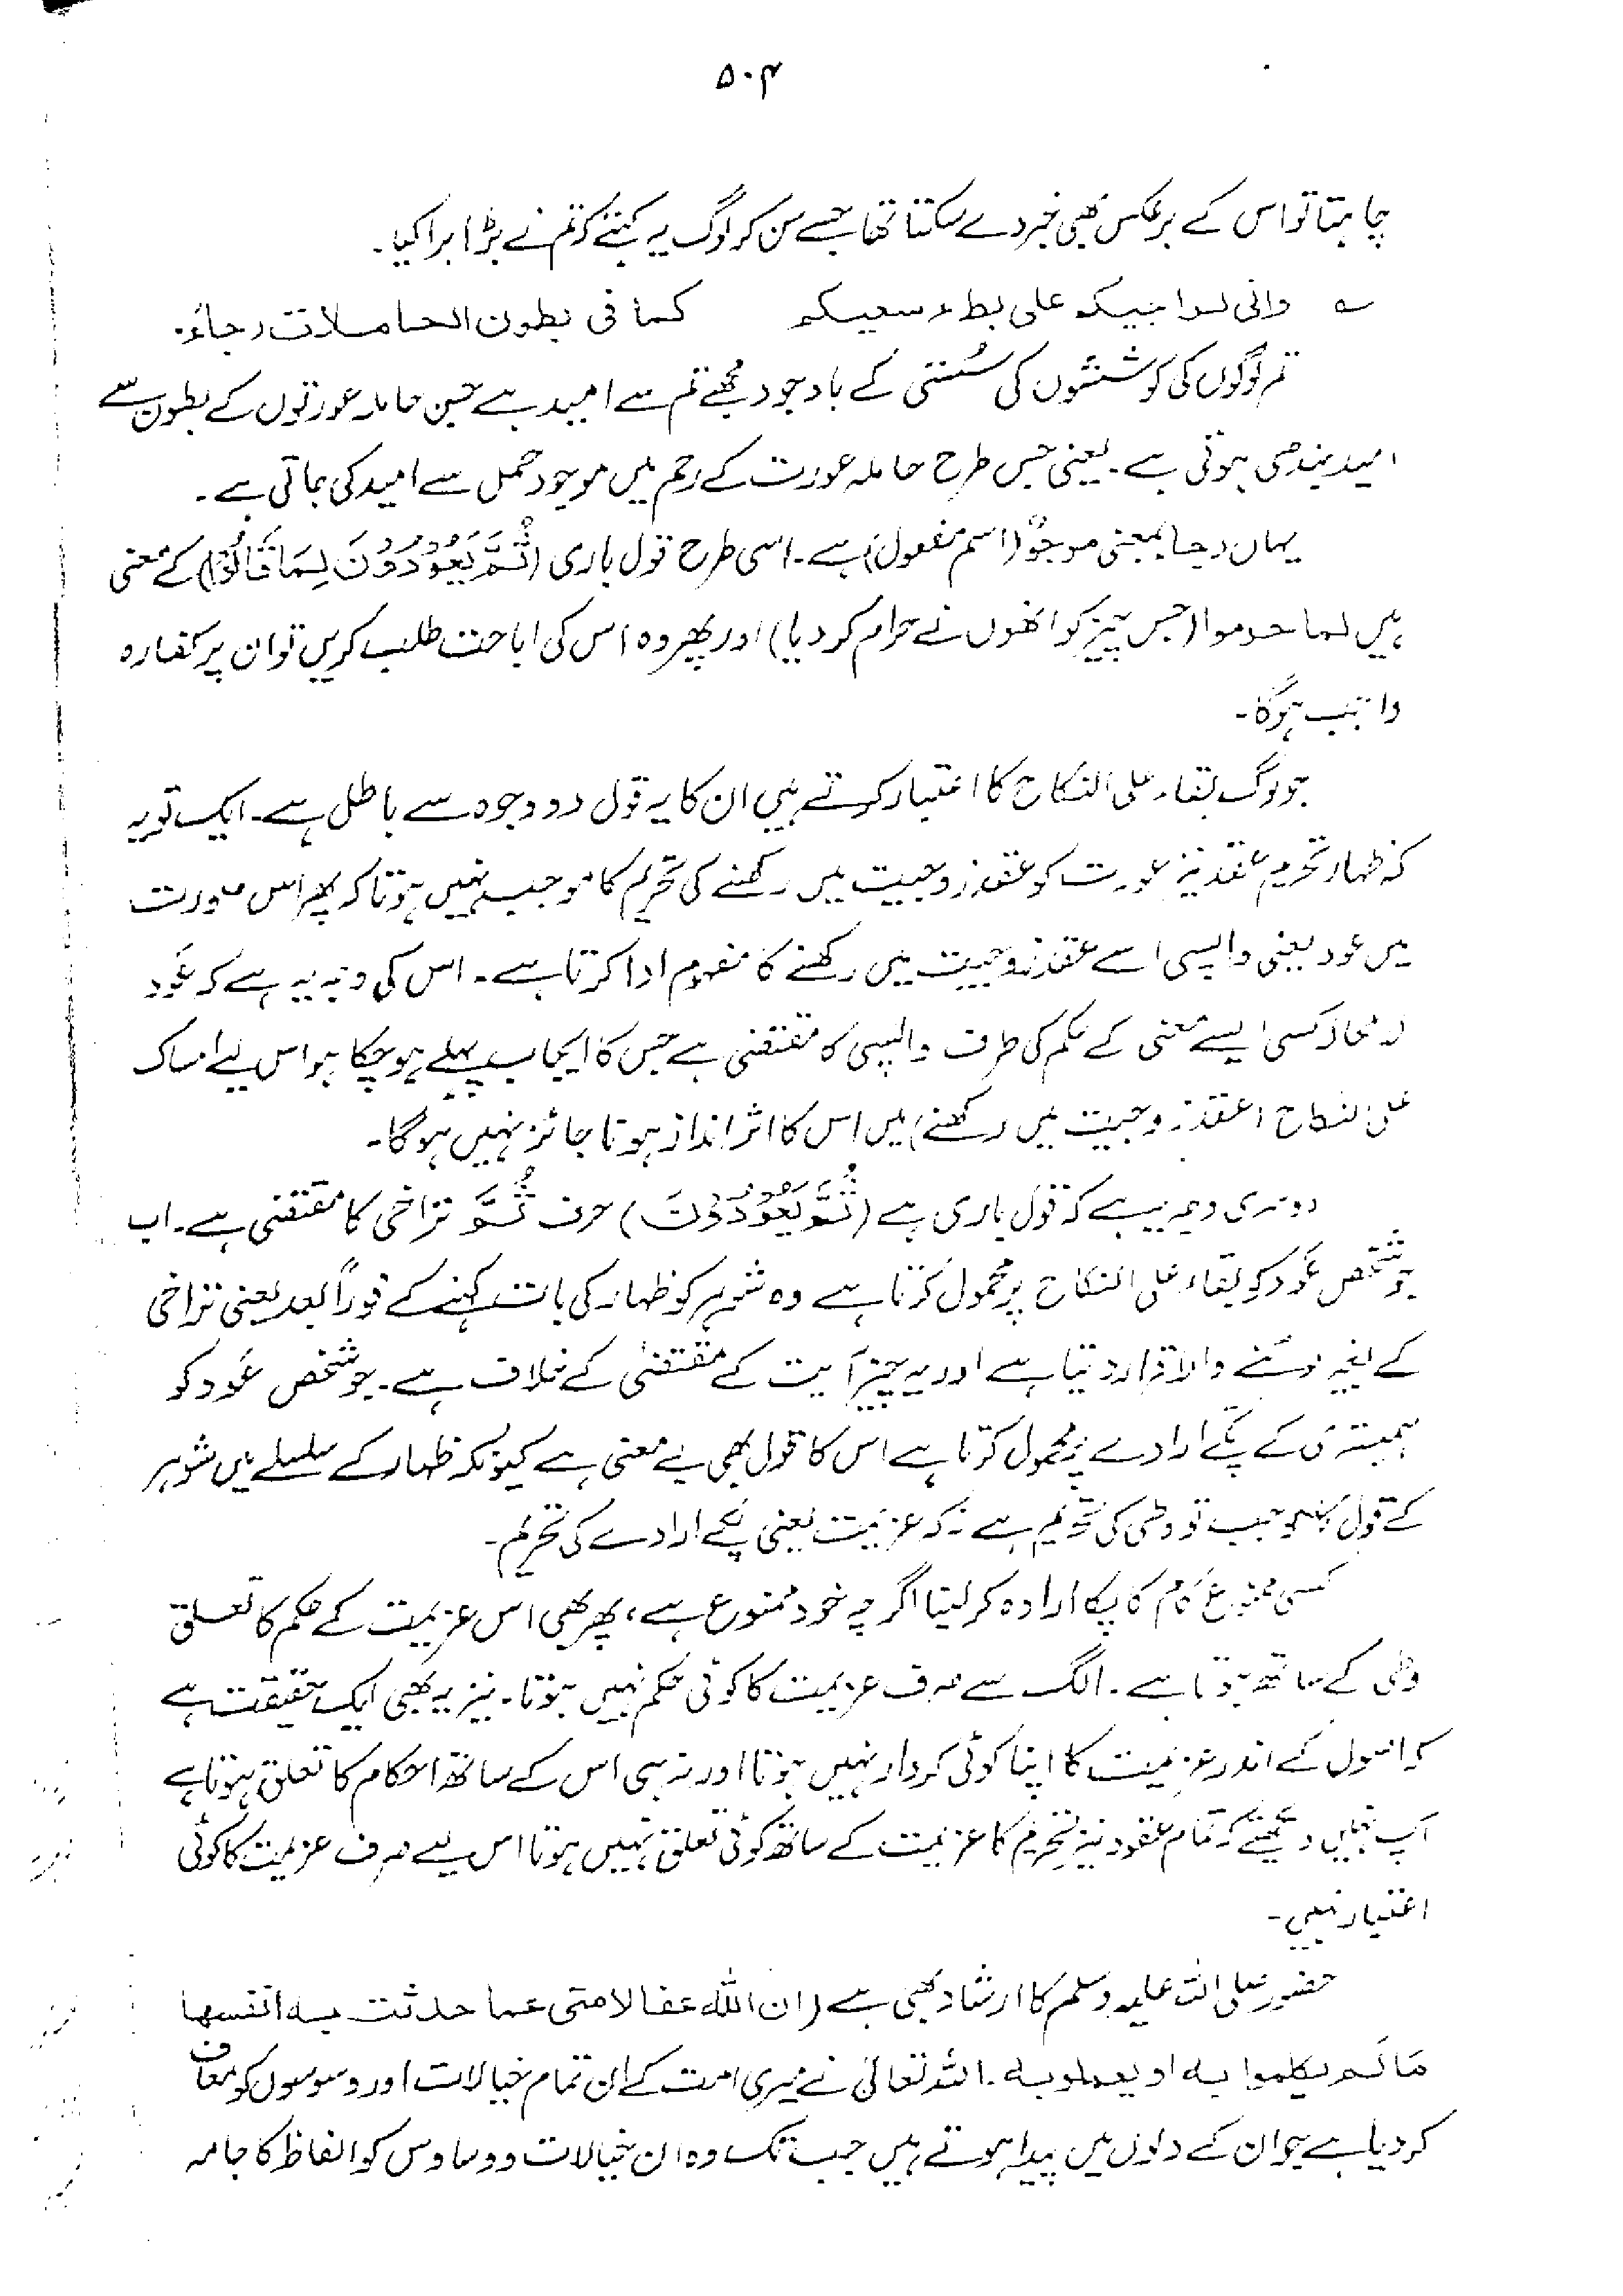 ۵۰۴
چاہتا تو اس کے برعکس بھی خبر دے سکتا تھا جسے سن کر لوگ یہ کہتے کہ تم نے بڑا برا کیا۔
؎ وانی لراجیکم علی بطء سعیکم کما فی بطون الحاملات رجاء۔
تم لوگوں کی کوششوں کی سُستی کے باوجود مجھے تم سے امید ہے جس حاملہ عورتوں کے بطون سے
امید بندھی ہوتی ہے۔ یعنی جس طرح حاملہ عورت کے رحم میں موجود حمل سے امید کی جاتی ہے۔
یہاں رجا بمعنی مرجوٌ (اسم مفعول) ہے۔ اسی طرح قول باری (ثُمَّ يَعُوْدُوْنَ لِمَا قَالُوْا) کے معنی
ہیں لما حرموا (جس چیز کو انھوں نے حرام کر دیا) اور پھر وہ اس کی اباحت طلب کریں تو ان پر کفارہ
واجب ہوگا۔
جو لوگ بقاء علی النکاح کا اعتبار کرتے ہیں ان کا یہ قول دو وجوہ سے باطل ہے۔ ایک تو یہ
کہ ظہار تحریم عقد نیز عورت کو عقد زوجیت میں رکھنے کی تحریم کا موجب نہیں ہوتا کہ پھر اس صورت
میں عود یعنی واپسی اسے عقد زوجیت میں رکھنے کا مفہوم ادا کرتا ہے۔ اس کی وجہ یہ ہے کہ عَود
لا محالہ کسی ایسے معنی کے حکم کی طرف واپسی کا مقتضی ہے جس کا ایجاب پہلے ہو چکا ہو اس لیے امساک
علی النکاح (عقد زوجیت میں رکھنے) میں اس کا اثر انداز ہونا جائز نہیں ہوگا۔
دوسری وجہ یہ ہے کہ قول باری ہے (ثُمَّ يَعُوْدُوْنَ) حرف ثُمَّ تراخی کا مقتضی ہے۔ اب
جو شخص عَود کو بقاء علی النکاح پر محمول کرتا ہے وہ شوہر کو ظہار کی بات کہنے کے فوراً بعد یعنی تراخی
کے بغیر لوٹنے والا قرار دیتا ہے اور یہ چیز آیت کے مقتضیٰ کے خلاف ہے۔ جو شخص عَود کو
ہمبستری کے پکے ارادے پر محمول کرتا ہے اس کا قول بھی بے معنی ہے کیونکہ ظہار کے سلسلے میں شوہر
کے قول کا موجب تو وطی کی تحریم ہے نہ کہ عزیمت یعنی پکے ارادے کی تحریم۔
کسی ممنوع کام کا پکا ارادہ کر لینا اگرچہ خود ممنوع ہے، پھر بھی اس عزیمت کے حکم کا تعلق
وطی کے ساتھ ہوتا ہے۔ الگ سے صرف عزیمت کا کوئی حکم نہیں ہوتا۔ نیز یہ بھی ایک حقیقت ہے
کہ اصول کے اندر عزیمت کا اپنا کوئی کردار نہیں ہوتا اور نہ ہی اس کے ساتھ احکام کا تعلق ہوتا ہے
آپ نہیں دیکھتے کہ تمام عقود نیز تحریم کا عزیمت کے ساتھ کوئی تعلق نہیں ہوتا اس لیے صرف عزیمت کا کوئی
اعتبار نہیں۔
حضور صلی اللہ علیہ وسلم کا ارشاد بھی ہے (ان اللہ عفا لامتی عما حدثت بہ انفسھا
مالم یکلموا بہ او یعملوبہ۔ اللہ تعالیٰ نے میری امت کے ان تمام خیالات اور وسوسوں کو معاف
کر دیا ہے جو ان کے دلوں میں پیدا ہوتے ہیں جب تک وہ ان خیالات و وساوس کو الفاظ کا جامہ